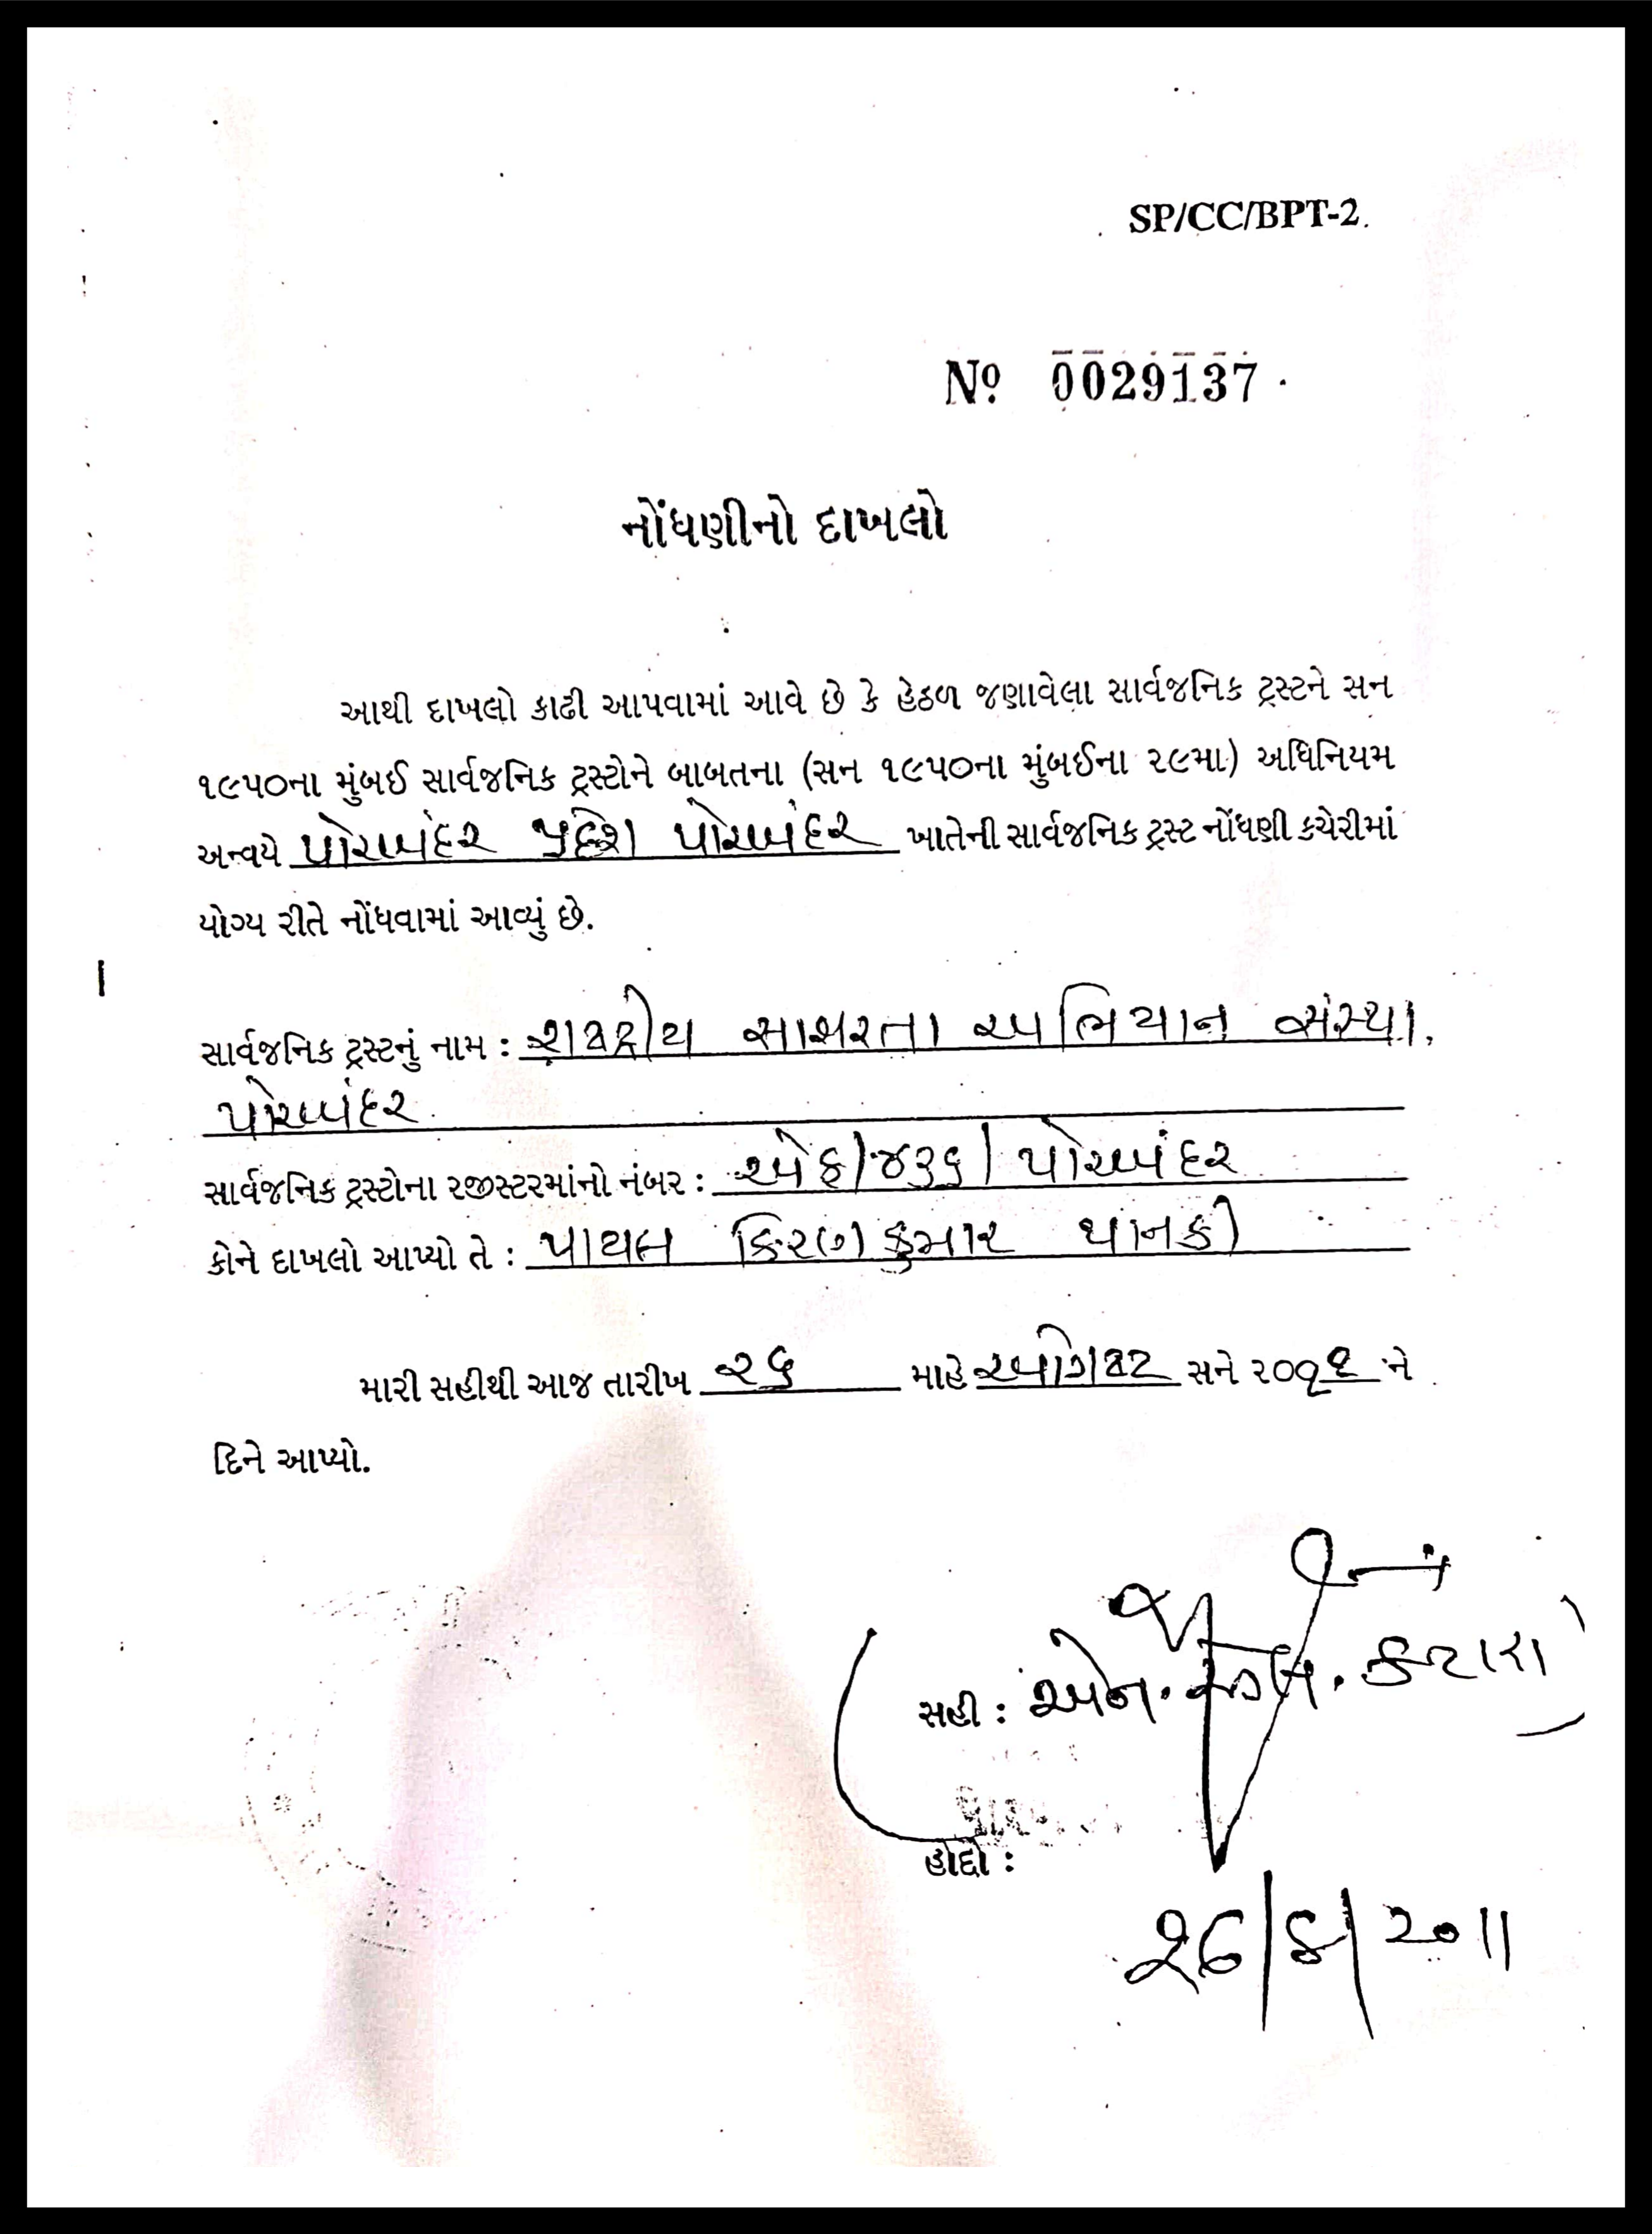 SP/CC/BPT-2.
Nº 0029137
નોંધણીનો દાખલો
આથી દાખલો કાઢી આપવામાં આવે છે કે હેઠળ જણાવેલા સાર્વજનિક ટ્રસ્ટને સન
૧૯૫૦ના મુંબઈ સાર્વજનિક ટ્રસ્ટોને બાબતના (સન ૧૯૫૦ના મુંબઈના ૨૯મા) અધિનિયમ
અન્વયે પોરબંદર પ્રદેશ પોરબંદર ખાતેની સાર્વજનિક ટ્રસ્ટ નોંધણી કચેરીમાં
યોગ્ય રીતે નોંધવામાં આવ્યું છે.
સાર્વજનિક ટ્રસ્ટનું નામ : રાષ્ટ્રીય સાક્ષરતા અભિયાન સંસ્થા,
પોરબંદર
સાર્વજનિક ટ્રસ્ટોના રજીસ્ટરમાંનો નંબર : એફ/૪૩૬/પોરબંદર
કોને દાખલો આપ્યો તે : પાયલ કિરણકુમાર થાનકી
મારી સહીથી આજ તારીખ ૨૬ માહે ઓગષ્ટ સને ૨૦૧૧ ને
દિને આપ્યો.
સહી : એન. એલ. કટારા
હોદ્દો :
26/8/2011